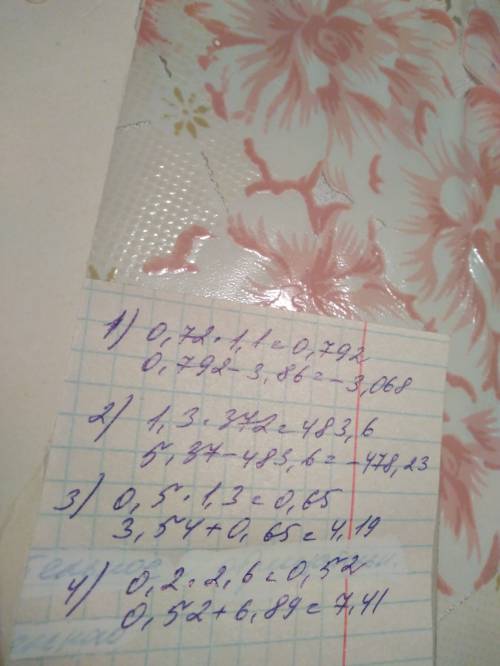 1) 0,72·1,1=0,792
0,792-3,86=-3,068
2) 1,3·372=483,6
5,37-483,6=-478,23
3) 0,5·1,3=0,65
3,54+0,65=4,19
4) 0,2·2,6=0,52
0,52+6,89=7,41